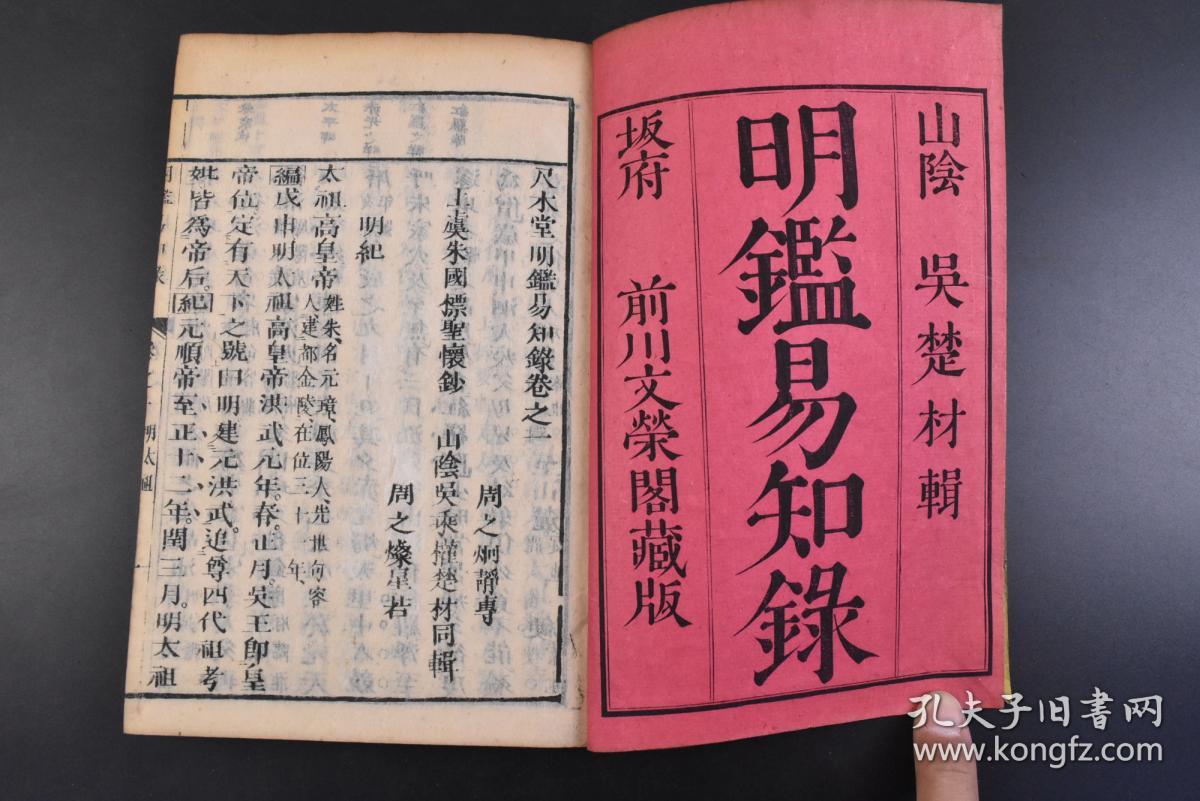 山陰 吳楚材輯
明鑑易知錄
坂府 前川文榮閣藏版
尺木堂明鑑易知錄卷之一
上虞朱國標聖懷鈔 山陰吳乘權楚材同輯
周之炯靜專
周之燦星若
明紀
太祖高皇帝姓朱、名元璋、鳳陽人、先世句容人、建都金陵、在位三十一年、
編戊申明太祖高皇帝洪武元年。春。正月。吳王卽皇
帝位定有天下之號曰明建元洪武。追尊四代祖考
妣皆爲帝后。紀元順帝至正十二年。閏三月。明太祖
明太祖
孔夫子旧书网
www.kongfz.com